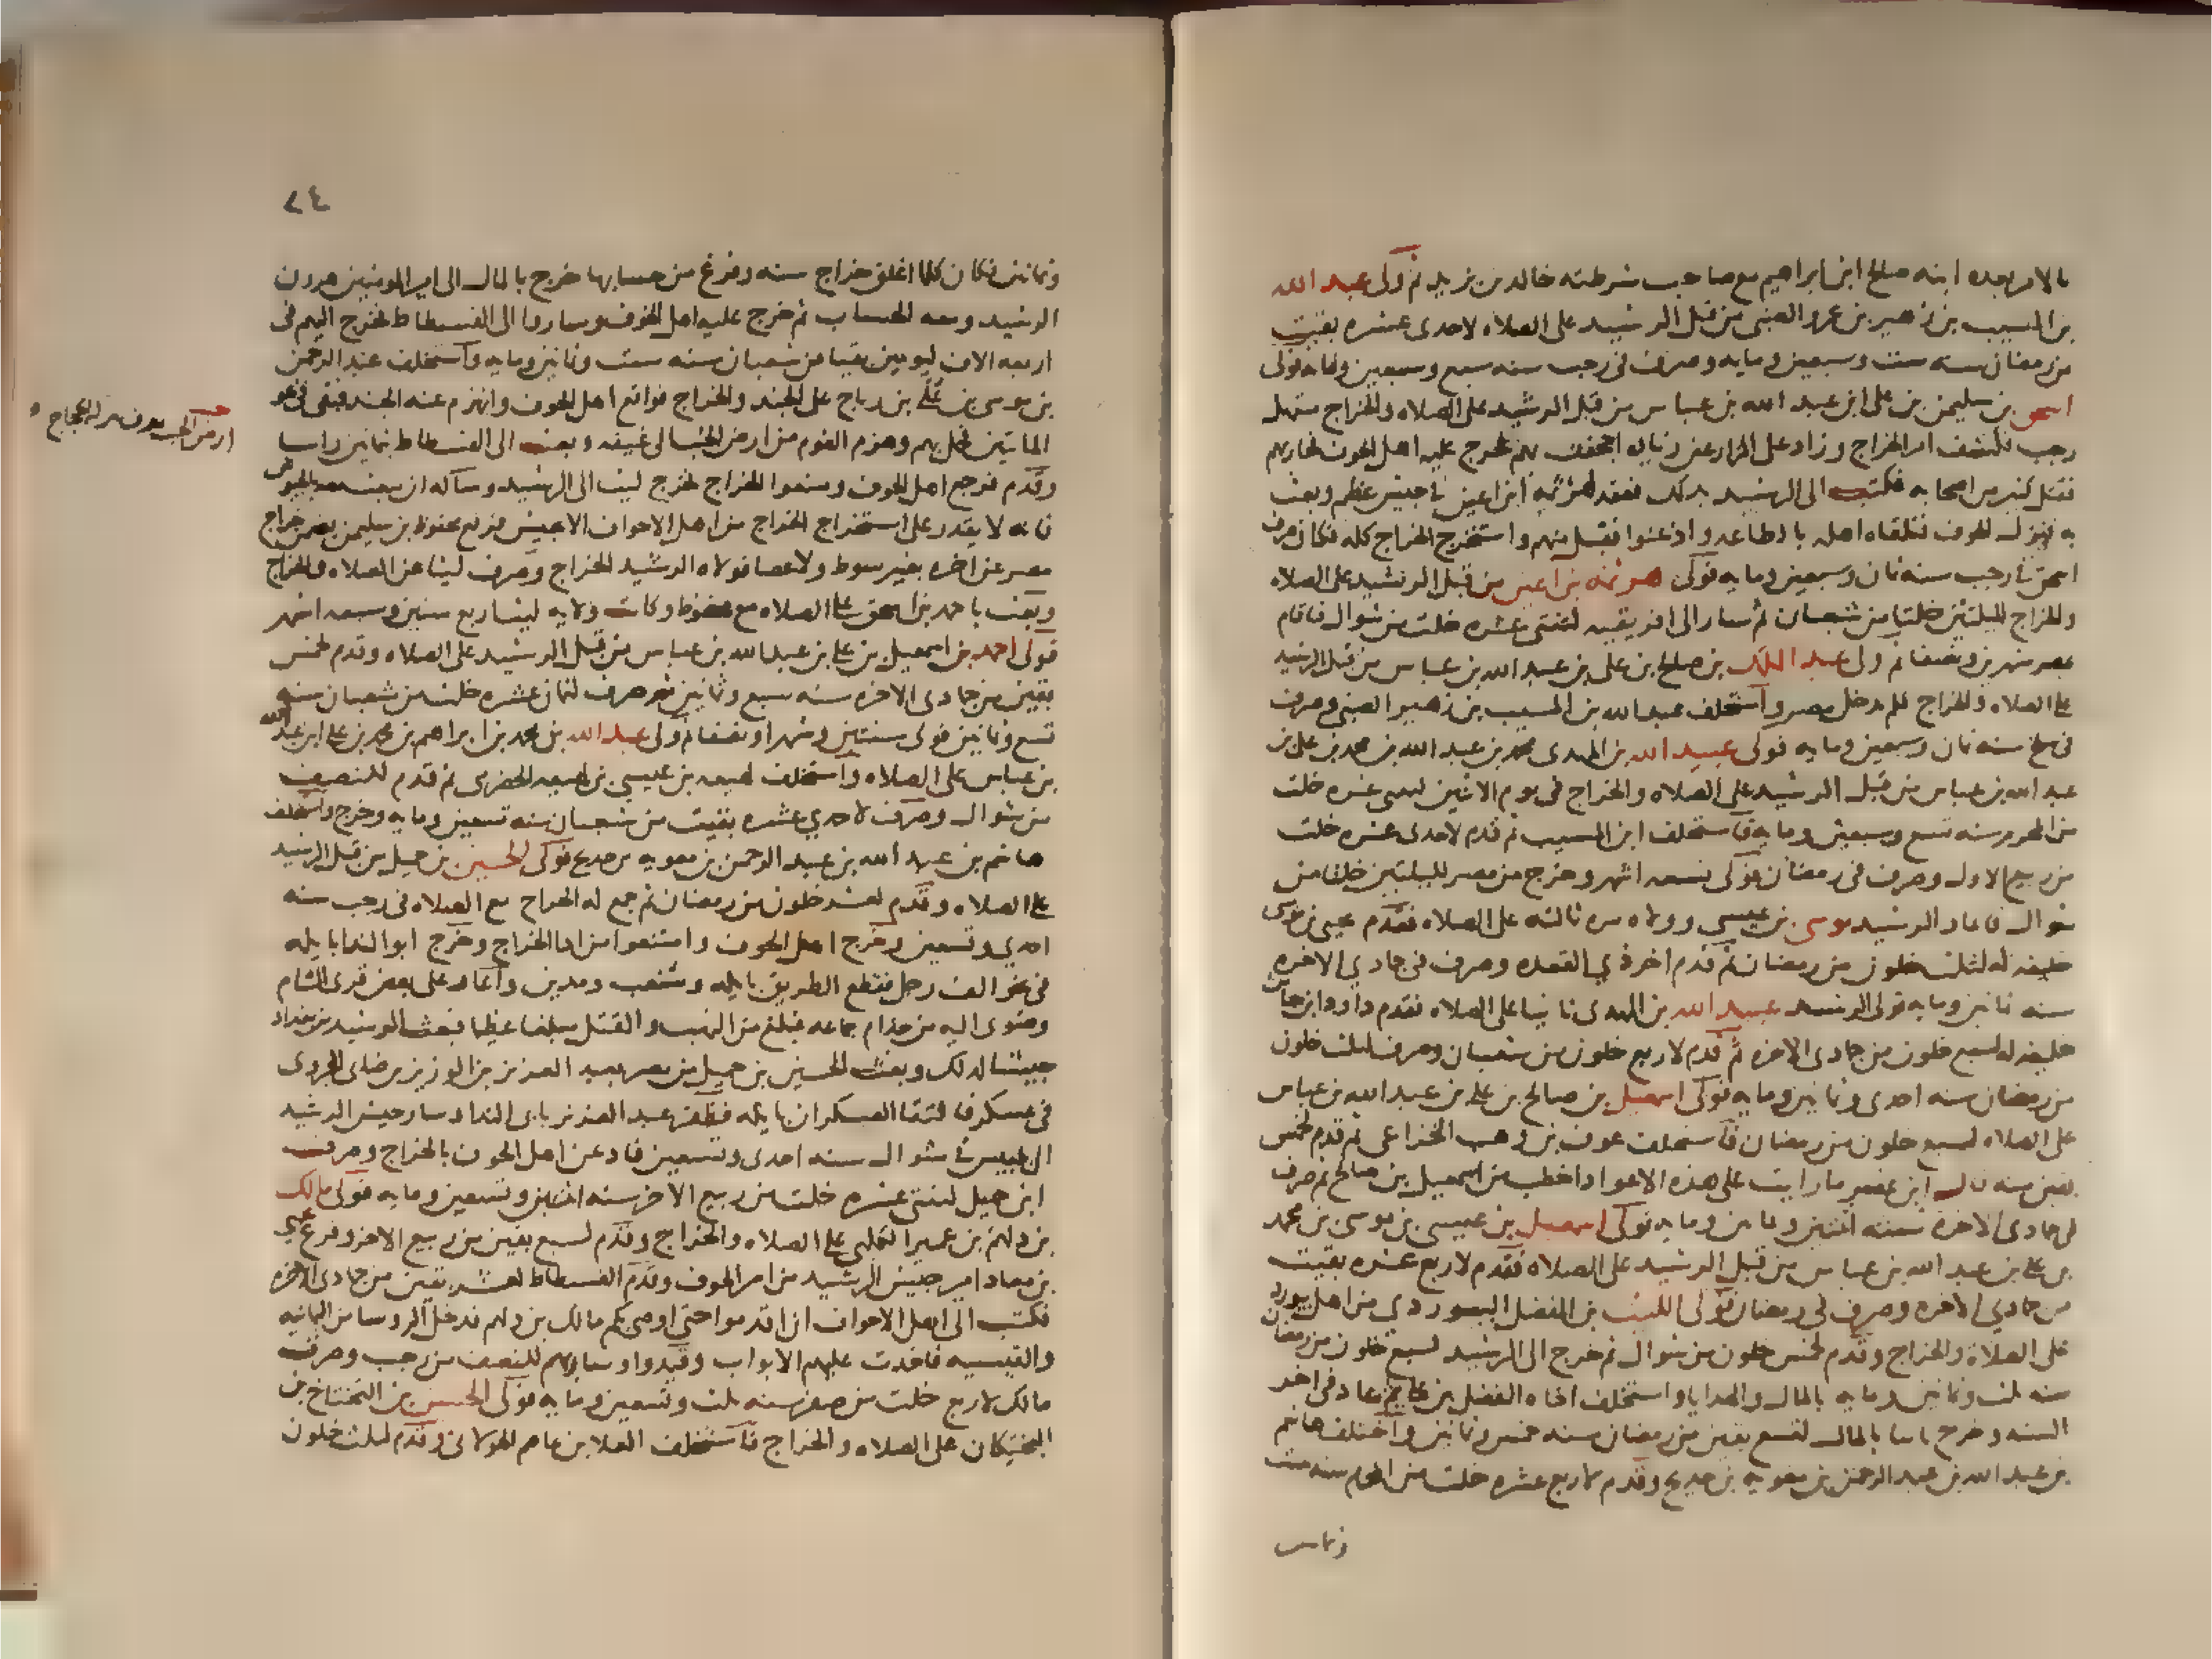 بالامر بعده ابنه صالح ابن ابراهيم مع صاحب شرطته خالد بن يزيد ثم ولى عبد الله
بن المسيب بن زهير بن عمرو الضبى من قبل الرشيد على الصلاه لاحدى عشره بقيت
من رمضان سنه ست وسبعين ومايه وصرف فى رجب سنه سبع وسبعين ومايه فولى
اسحق بن سليمن بن على ابن عبد الله بن عباس من قبل الرشيد على الصلاه والخراج مستهل
رجب فكشف امر الخراج وزاد على المزارعين زياده اجحفت بهم فخرج عليه اهل الحوف فحاربهم
فقتل كثير من اصحابه فكتب الى الرشيد بذلك فعقد لهرثمه ابن اعين فى جيش عظيم وبعث
به فنزل الحوف فتلقاه اهله بالطاعه واذعنوا فقبل منهم واستخرج الخراج كله فكان صرف
اسحق فى رجب سنه ثمان وسبعين ومايه فولى هرثمه بن اعين من قبل الرشيد على الصلاه
والخراج لليلتين خلتا من شعبان ثم سار الى افريقيه لثنتى عشره خلت من شوال فاقام
بمصر شهرين ونصفا ثم ولى عبد الملك بن صالح بن على بن عبد الله بن عباس من قبل الرشيد
على الصلاه والخراج فلم يدخل مصر واستخلف عبد الله بن المسيب بن زهير الضبى وصرف
فى سلخ سنه ثمان وسبعين ومايه فولى عبيد الله بن المهدى محمد بن عبد الله بن محمد بن على بن
عبد الله بن عباس من قبل الرشيد على الصلاه والخراج فى يوم الاثنين لثنتى عشره خلت
من المحرم سنه تسع وسبعين ومايه فاستخلف ابن المسيب ثم قدم لاحدى عشره خلت
من ربيع الاول وصرف فى رمضان فولى تسعه اشهر وخرج من مصر لليلتين خلتا من
شوال فاعاد الرشيد موسى بن عيسى وولاه مره ثالثه على الصلاه فقدم يحيى بن موسى
خليفه له لثلث خلون من رمضان ثم قدم اخر ذي القعده وصرف فى جمادي الاخره
سنه ثمانين ومايه فولى الرشيد عبيد الله بن المهدى ثانيا على الصلاه فقدم داود ابن حباش
خليفه له لسبع خلون من جمادى الاخره ثم قدم لاربع خلون من شعبان وصرف لثلث خلون
من رمضان سنه احدى وثمانين ومايه فولى اسمعيل بن صالح بن على بن عبد الله بن عباس
على الصلاه لسبع خلون من رمضان فاستخلف عون بن وهب الخزاعى ثم قدم لخمس
بقين منه قال ابن عفير ما رايت على هذه الاعواد اخطب من اسمعيل بن صالح ثم صرف
فى جمادى الاخره سنه اثنتين وثمانين ومايه فولى اسمعيل بن عيسى بن موسى بن محمد
بن على بن عبد الله بن عباس من قبل الرشيد على الصلاه فقدم لاربع عشره بقيت
من جمادي الاخره وصرف فى رمضان فولى الليث بن الفضل البيوردي من اهل بيورد
على الصلاة والخراج وقدم لخمس خلون من شوال ثم خرج الى الرشيد لسبع خلون من رمضان
سنه ثلث وثمانين ومايه بالمال والهدايا واستخلف اخاه الفضل بن على ثم عاد فى اخر
السنه وخرج ثانيا بالمال لتسع بقين من رمضان سنه خمس وثمانين واختلف هاشم
بن عبد الله بن عبد الرحمن بن معويه بن حديج وقدم لاربع عشره خلت من المحرم سنه ست
وثمانين
٢٤
وثمانين فكان كلما اغلق خراج سنه وفرغ من حسابها خرج بالمال الى امير المومنين هرون
الرشيد ومعه الحساب ثم خرج عليه اهل الحوف وساروا الى الفسطاط فخرج اليهم فى
اربعه الاف ليومين بقيا من شعبان سنه ست وثمانين ومايه واستخلف عبد الرحمن
بن موسى بن على بن رباح على الجند والخراج فواقع اهل الحوف وانهزم عنه الجند فبقى فى نحو
المائتين فحمل بهم وهزم القوم من ارض الجب الى غيفه وبعث الى الفسطاط بثمانين راسا
وقدم فرجع اهل الحوف ومنعوا الخراج فخرج ليث الى الرشيد وساله ان يبعث معه بالجيوش
فانه لا يقدر على استخراج الخراج من اهل الاحواف الا بجيش فرفع محفوظ بن سليمن يضمن خراج
مصر عن اخره بغير سوط ولا عصا فولاه الرشيد الخراج وصرف ليثا عن الصلاه والخراج
وبعث باحمد بن اسحق على الصلاه مع محفوظ وكانت ولايه ليث اربع سنين وسبعه اشهر
فولى احمد بن اسمعيل بن على بن عبد الله بن عباس من قبل الرشيد على الصلاه وقدم لخمس
بقين من جمادى الاخره سنه سبع وثمانين ثم صرف لثمان عشره خلت من شعبان سنه
تسع وثمانين فولى سنتين وشهرا ونصفا ثم ولى عبد الله بن محمد بن ابراهيم بن محمد بن على ابن عبد الله
بن عباس على الصلاه واستخلف لهيعه بن عيسى بن لهيعه الحضرمى ثم قدم للنصف
من شوال وصرف لاحدي عشره بقيت من شعبان سنه تسعين ومايه وخرج واستخلف
هاشم بن عبد الله بن عبد الرحمن بن معويه بن حديج فولى الحسين بن جميل من قبل الرشيد
على الصلاه وقدم لعشر خلون من رمضان ثم جمع له الخراج مع الصلاه فى رجب سنه
احدي وتسعين وخرج اهل الحوف وامتنعوا من ادا الخراج وخرج ابو الندا بايله
فى نحو الف رجل فقطع الطريق بايله وشعب ومدين واغار على بعض قرى الشام
وضوى اليه من جذام جماعه فبلغ من النهب والقتل مبلغا عظيما فبعث الرشيد من بغداد
جيشا لذلك وبعث الحسين بن جميل من مصر عبد العزيز بن الوزير بن ضابى الجروى
فى عسكر فالتقا العسكران بايله فظفر عبد العزيز بابى الندا وسار جيش الرشيد
الى بلبيس فى شوال سنه احدى وتسعين فاذعن اهل الحوف بالخراج وصرف
ابن جميل لثنتى عشره خلت من ربيع الاخر سنه اثنتين وتسعين ومايه فولى مالك
بن دلهم بن عمير الكلبى على الصلاه والخراج وقدم لسبع بقين من ربيع الاخر وفرغ يحيى
بن معاد امير جيش الرشيد من امر الحوف وقدم الفسطاط لعشر بقين من جمادى الاخره
فكتب الى اهل الاحواف ان اقدموا حتى اوصى بكم مالك بن دلهم فدخل الروسا من اليمانيه
والقيسيه فاخذت عليهم الابواب وقيدوا وسار بهم للنصف من رجب وصرف
مالك لاربع خلت من صفر سنه ثلث وتسعين ومايه فولى الحسن بن التختاخ بن
التختكان على الصلاه والخراج فاستخلف العلا بن عاصم الخولانى وقدم لثلث خلون